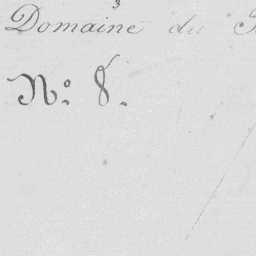 Domaine du
N.º 8.